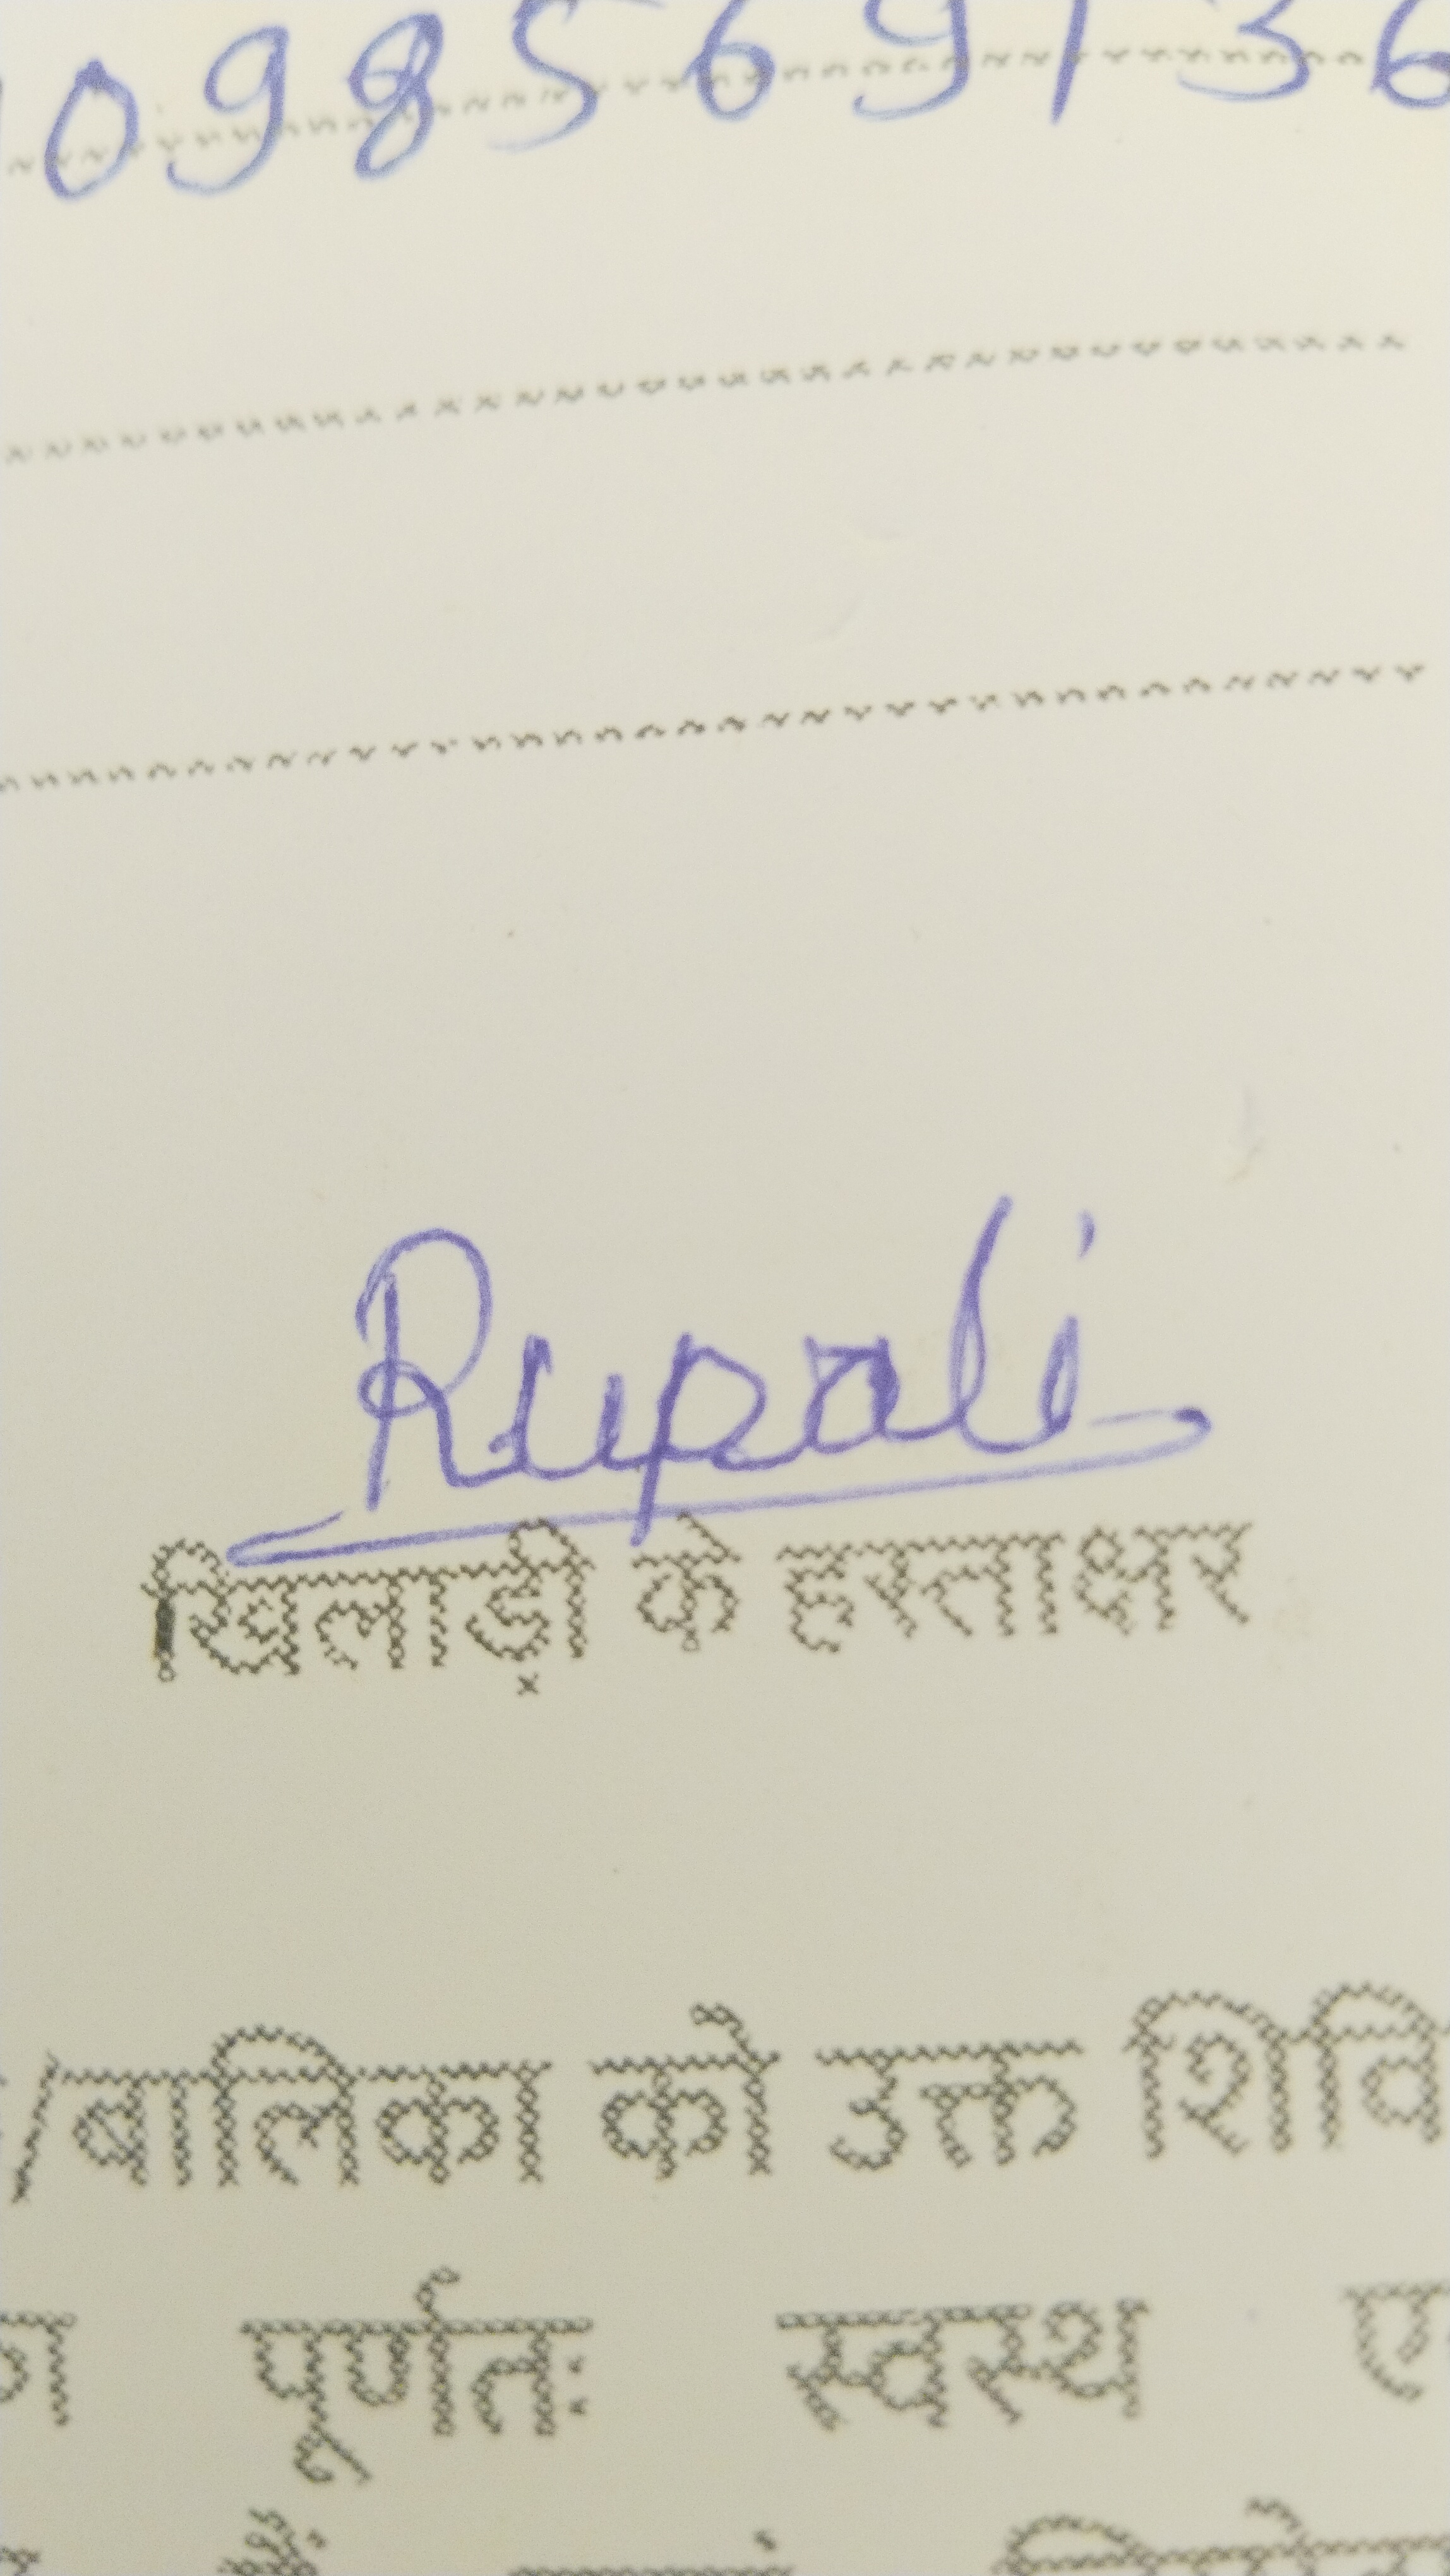 098569136
Rupali
खिलाड़ी के हस्ताक्षर
/बालिका को उक्त शिवि
पूर्णतः स्वस्थ ए